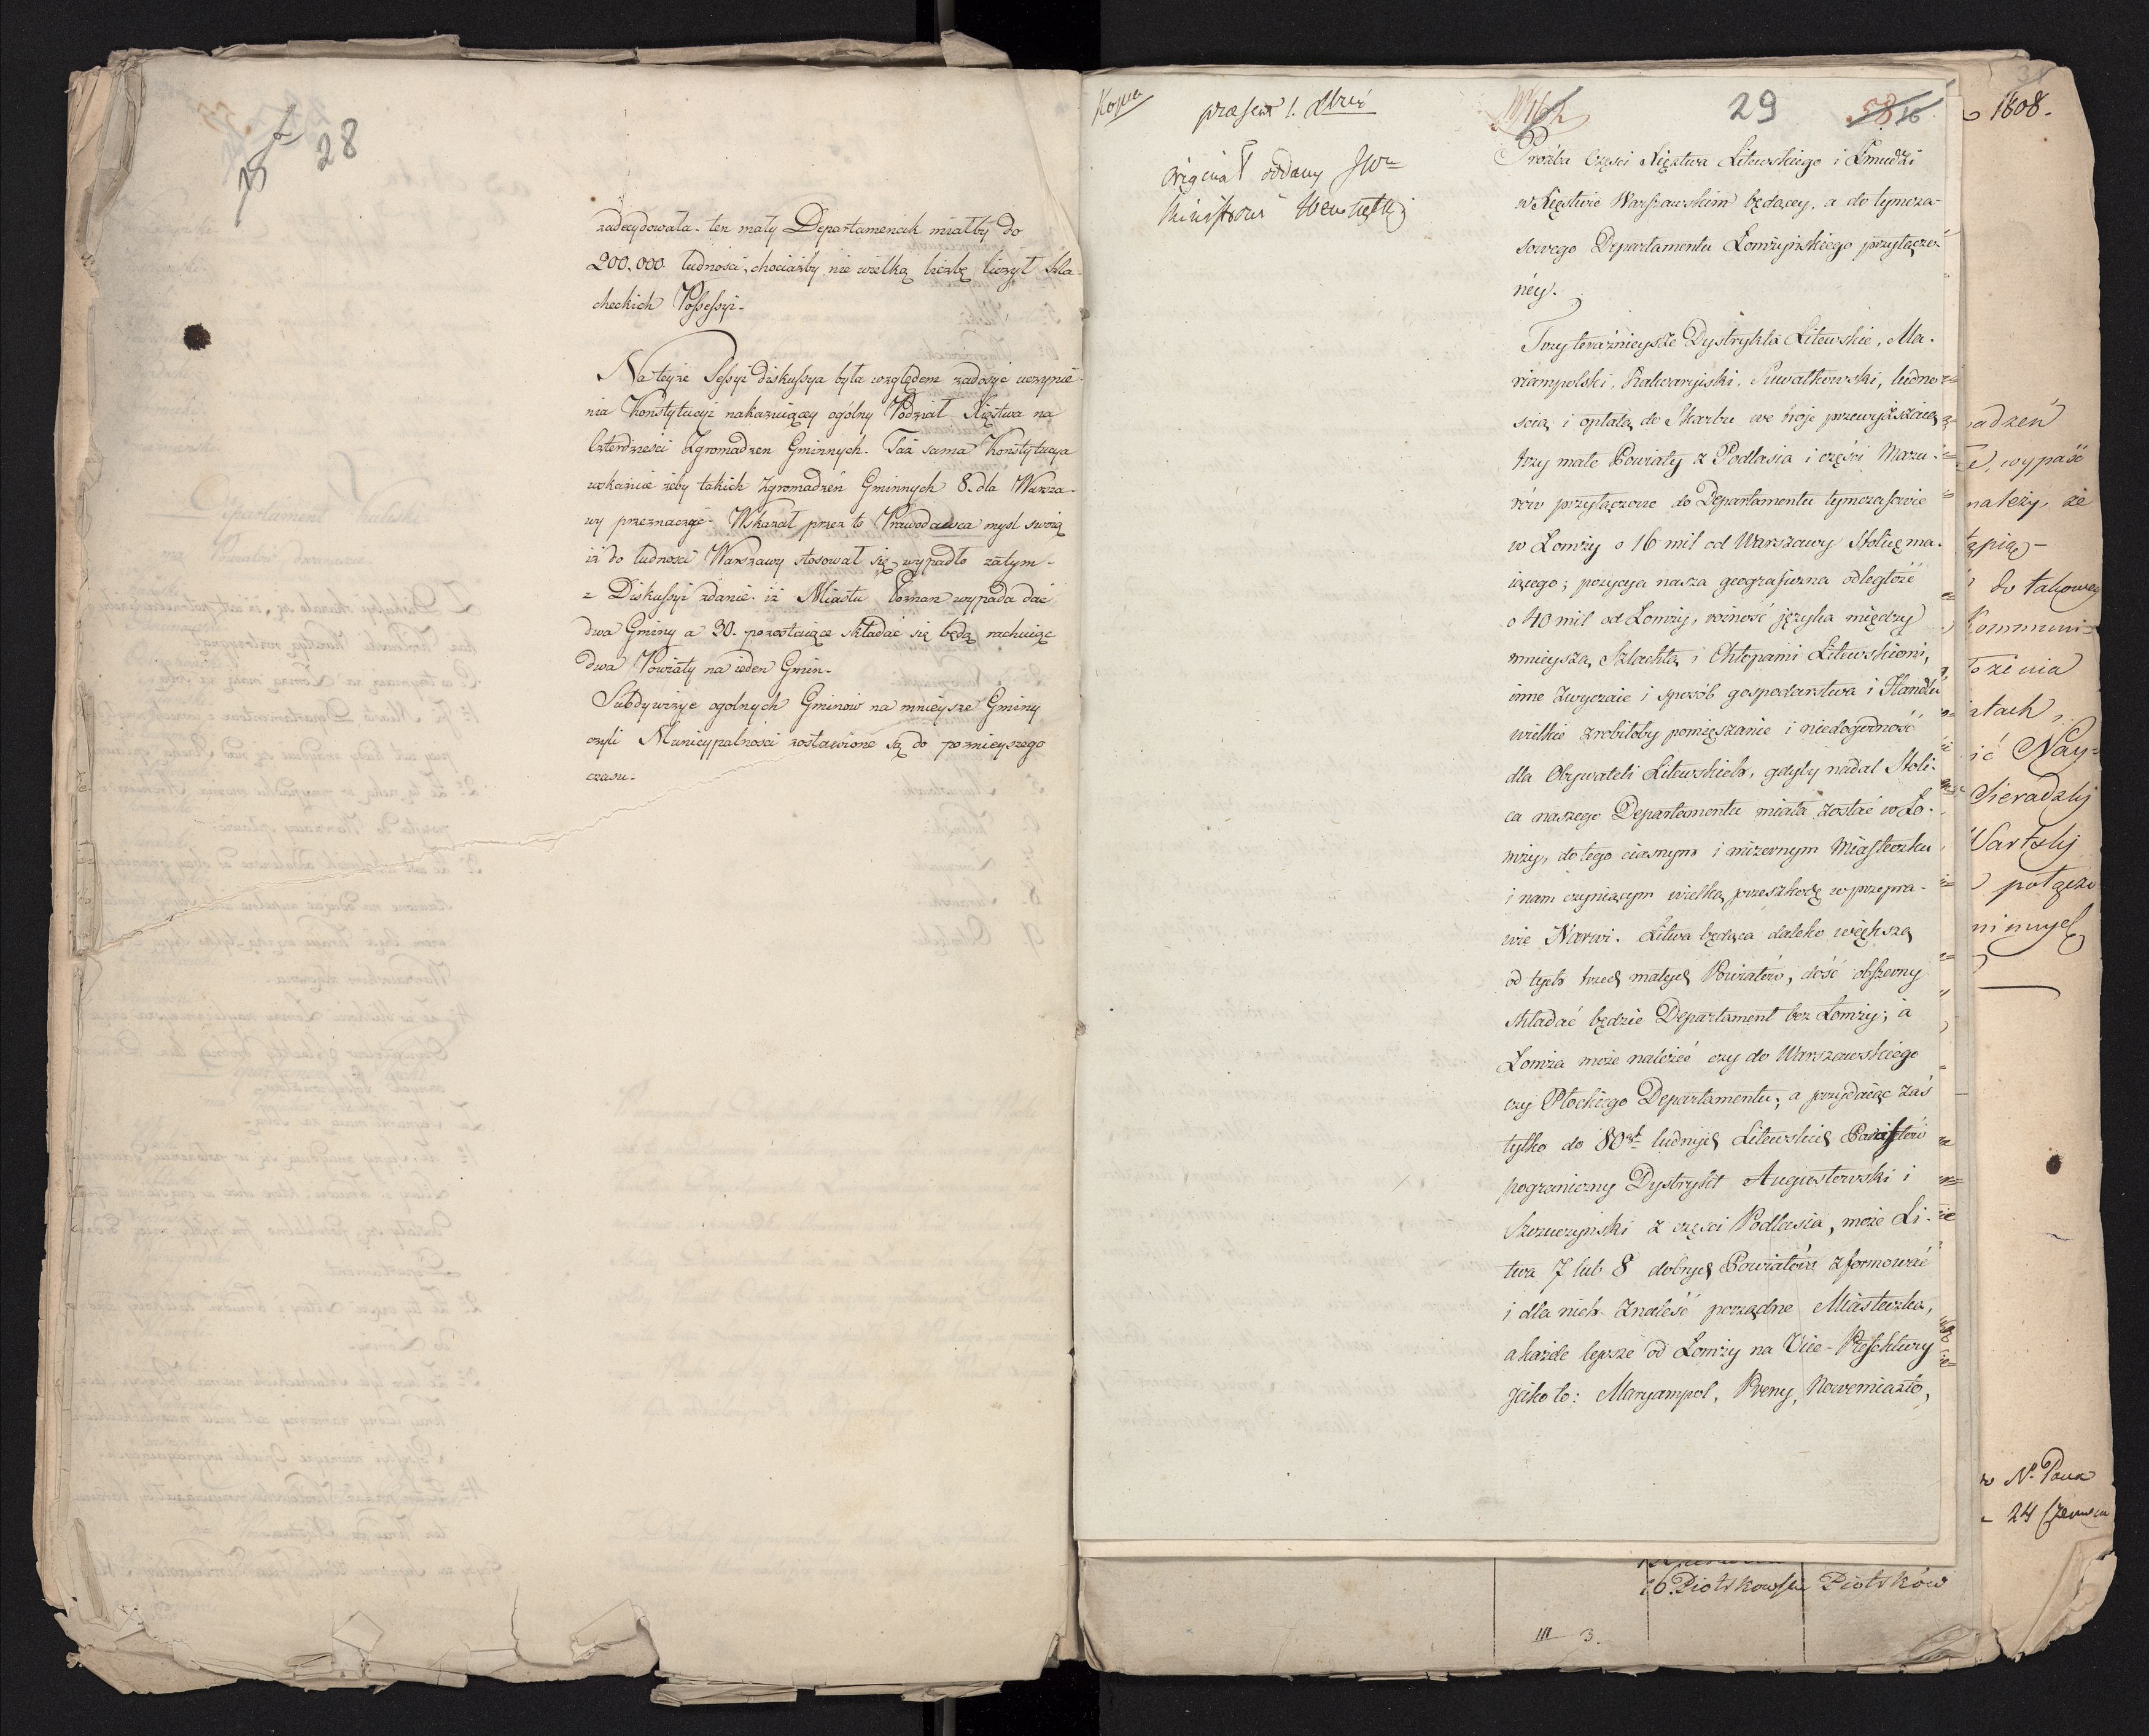 28
zadecydowała. ten mały Departamencik miałby do
200.000 ludności, chociażby nie wielką liczbę liczył Szla-
checkich Possessyi.
Na teyże Sessyi diskussya była względem zadosyć uczynie-
nia Konstytucyi nakazuiącey ogólny Podział Xięstwa na
Czterdzieści Zgromadzen Gminnych. Taż sama Konstytucya
wskazuie żeby takich Zgromadzeń Gminnych 8. dla Warsza-
wy przeznaczyć. Wskazał przez to Prawodawca mysl swoią
iż do ludnosci Warszawy stosował się, wypadło zatym
z Diskussyi zdanie. iż Miastu Poznan wypada dać
dwa Gminy a 30. pozostaiące składać się będą rachuiąc
dwa Powiaty na ieden Gmin.
Subdywizye ogolnych Gminow na mnieysze Gminy
czyli Municypalnosci zostawione są do poznieyszego
czasu.
Kopia
29
58 16
original oddany JW
Ministrowi
Prośba Części Xięstwa Litewskiego i Żmudzi
w Xięstwie Warszawskim będącey, a do tymcza-
sowego Departamentu Łomżyńskiego przyłączo-
ney.
Trzy teraźnieysze Dystrykta Litewskie, Ma-
riampolski, Kalwaryiski, Suwałkowski, ludno-
scią i opłatą do Skarbu we troje przewyższaią
trzy małe Powiaty z Podlasia i części Mazu-
rów przyłączone do Departamentu tymczasowie
w Łomży o 16 mil od Warszawy Stolicę ma-
iącego; pozycya nasza geograficzna odległość
o 40 mil od Łomży, rożność języka między
mnieyszą Szlachtą i Chłopami Litewskiemi,
inne zwyczaie i sposób gospodarstwa i Handlu
wielkie zrobiłoby pomięszanie i niedogodność
dla Obywateli Litewskich, gdyby nadal Stoli-
ca naszego Departamentu miała zostać w Ło-
mży, do tego ciasnym i mizernym Miasteczku
i nam czyniącym wielką przeszkodę w przepra-
wie Narwi. Litwa będąca daleko większą
od tych trzech małych Powiatów, dość obszerny
składać będzie Departament bez Łomży; a
Łomża może należeć czy do Warszawskiego
czy Płockiego Departamentu; a przydaiąc zaś
tylko do 80 ludnych Litewskich Powiatów
pograniczny Dystrykt Augustowski i
Szczuczyński z części Podlasia, może Li-
twa 7 lub 8 dobrych Powiatów zformować
i dla nich znaleść porządne Miasteczka,
a każde lepsze od Łomży na Vice-Prefektury
jako to: Maryampol, Preny, Nowemiasto,
1808.
adzeń
wypaść
należy, że
tępią-
do takowey
Kommuni-
żenia
atach,
ić Nay-
Sieradzkij
Wartskij
połącze
w N. Pana
24 Czerwca
16. Piotrkowski Piotrków
III 3.